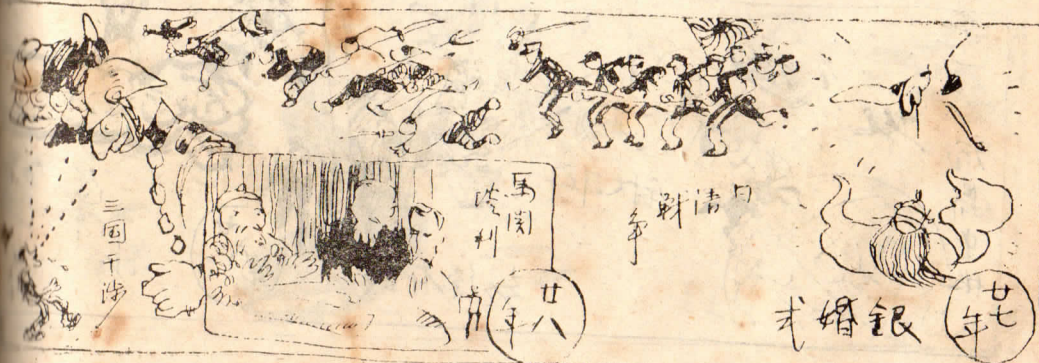 廿七年
銀婚式
日清戦争
廿八年
馬関
談判
三国干渉